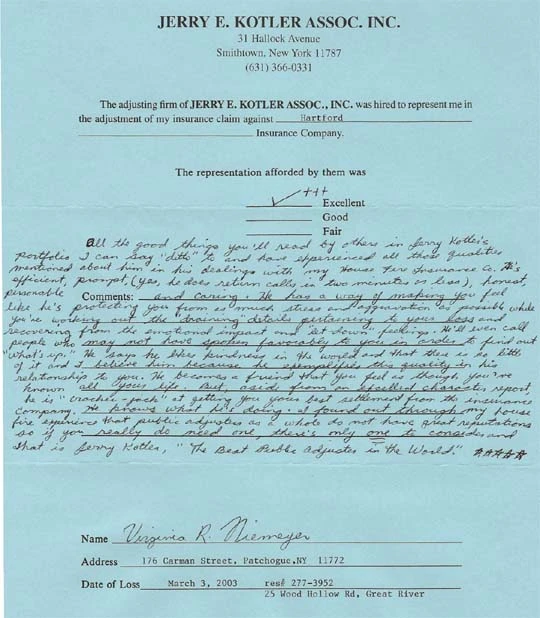 JERRY E. KOTLER ASSOC. INC.
31 Hallock Avenue
Smithtown, New York 11787
(631) 366-0331
The adjusting firm of JERRY E. KOTLER ASSOC., INC. was hired to represent me in
the adjustment of my insurance claim against Hartford
Insurance Company.
The representation afforded by them was
✓+++ Excellent
Good
Fair
All the good things you'll read by others in Jerry Kotler's
portfolio I can say "ditto" to and have experienced all those qualities
mentioned about him in his dealings with my House Fire Insurance Co. He's
efficient, prompt, (yes, he does return calls in two minutes or less), honest,
personable
Comments: and caring. He has a way of making you feel
like he's protecting you from as much stress and aggravation as possible while
you're working out the details pertaining to your loss and
recovering from the emotional impact and "let down" feelings. He'll even call
people who may not have spoken favorably to you in order to find out
"what's up." He says he likes kindness in the world and that there is so little
of it and I believe him because he exemplifies this quality in his
relationship to you. He becomes a friend that you feel as though you've
known all your life. But, aside from an excellent character report,
he is "cracker-jack" at getting you your best settlement from the insurance
company. He knows what he's doing. I found out through my house
fire experience that public adjusters as a whole do not have great reputations
so if you really do need one, there's only one to consider and
that is Jerry Kotler, "The Best Public Adjuster in the World." ★★★★★
Name Virginia R. Niemeyer
Address 176 Carman Street, Patchogue,NY 11772
Date of Loss March 3, 2003 res# 277-3952
25 Wood Hollow Rd, Great River